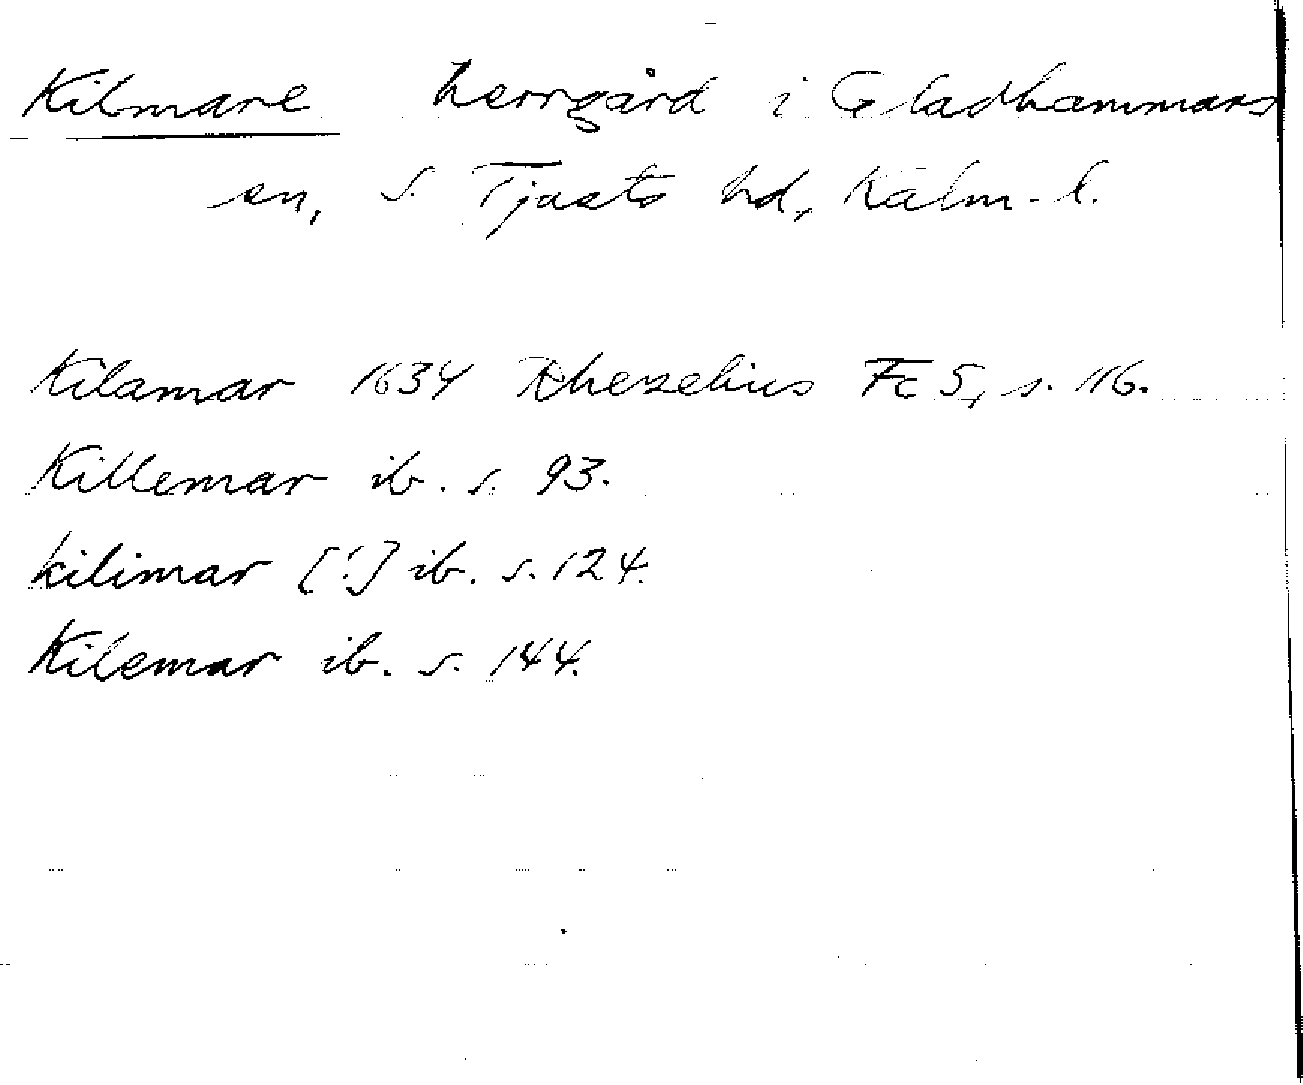 Kilmare herrgård i Gladhammars
sn, S. Tjusts hd, Kalm. l.
Kilamar 1634 Rhezelius Fc 5, s. 116.
Killemar ib. s. 93.
kilimar [!] ib. s. 124.
Kilemar ib. s. 144.